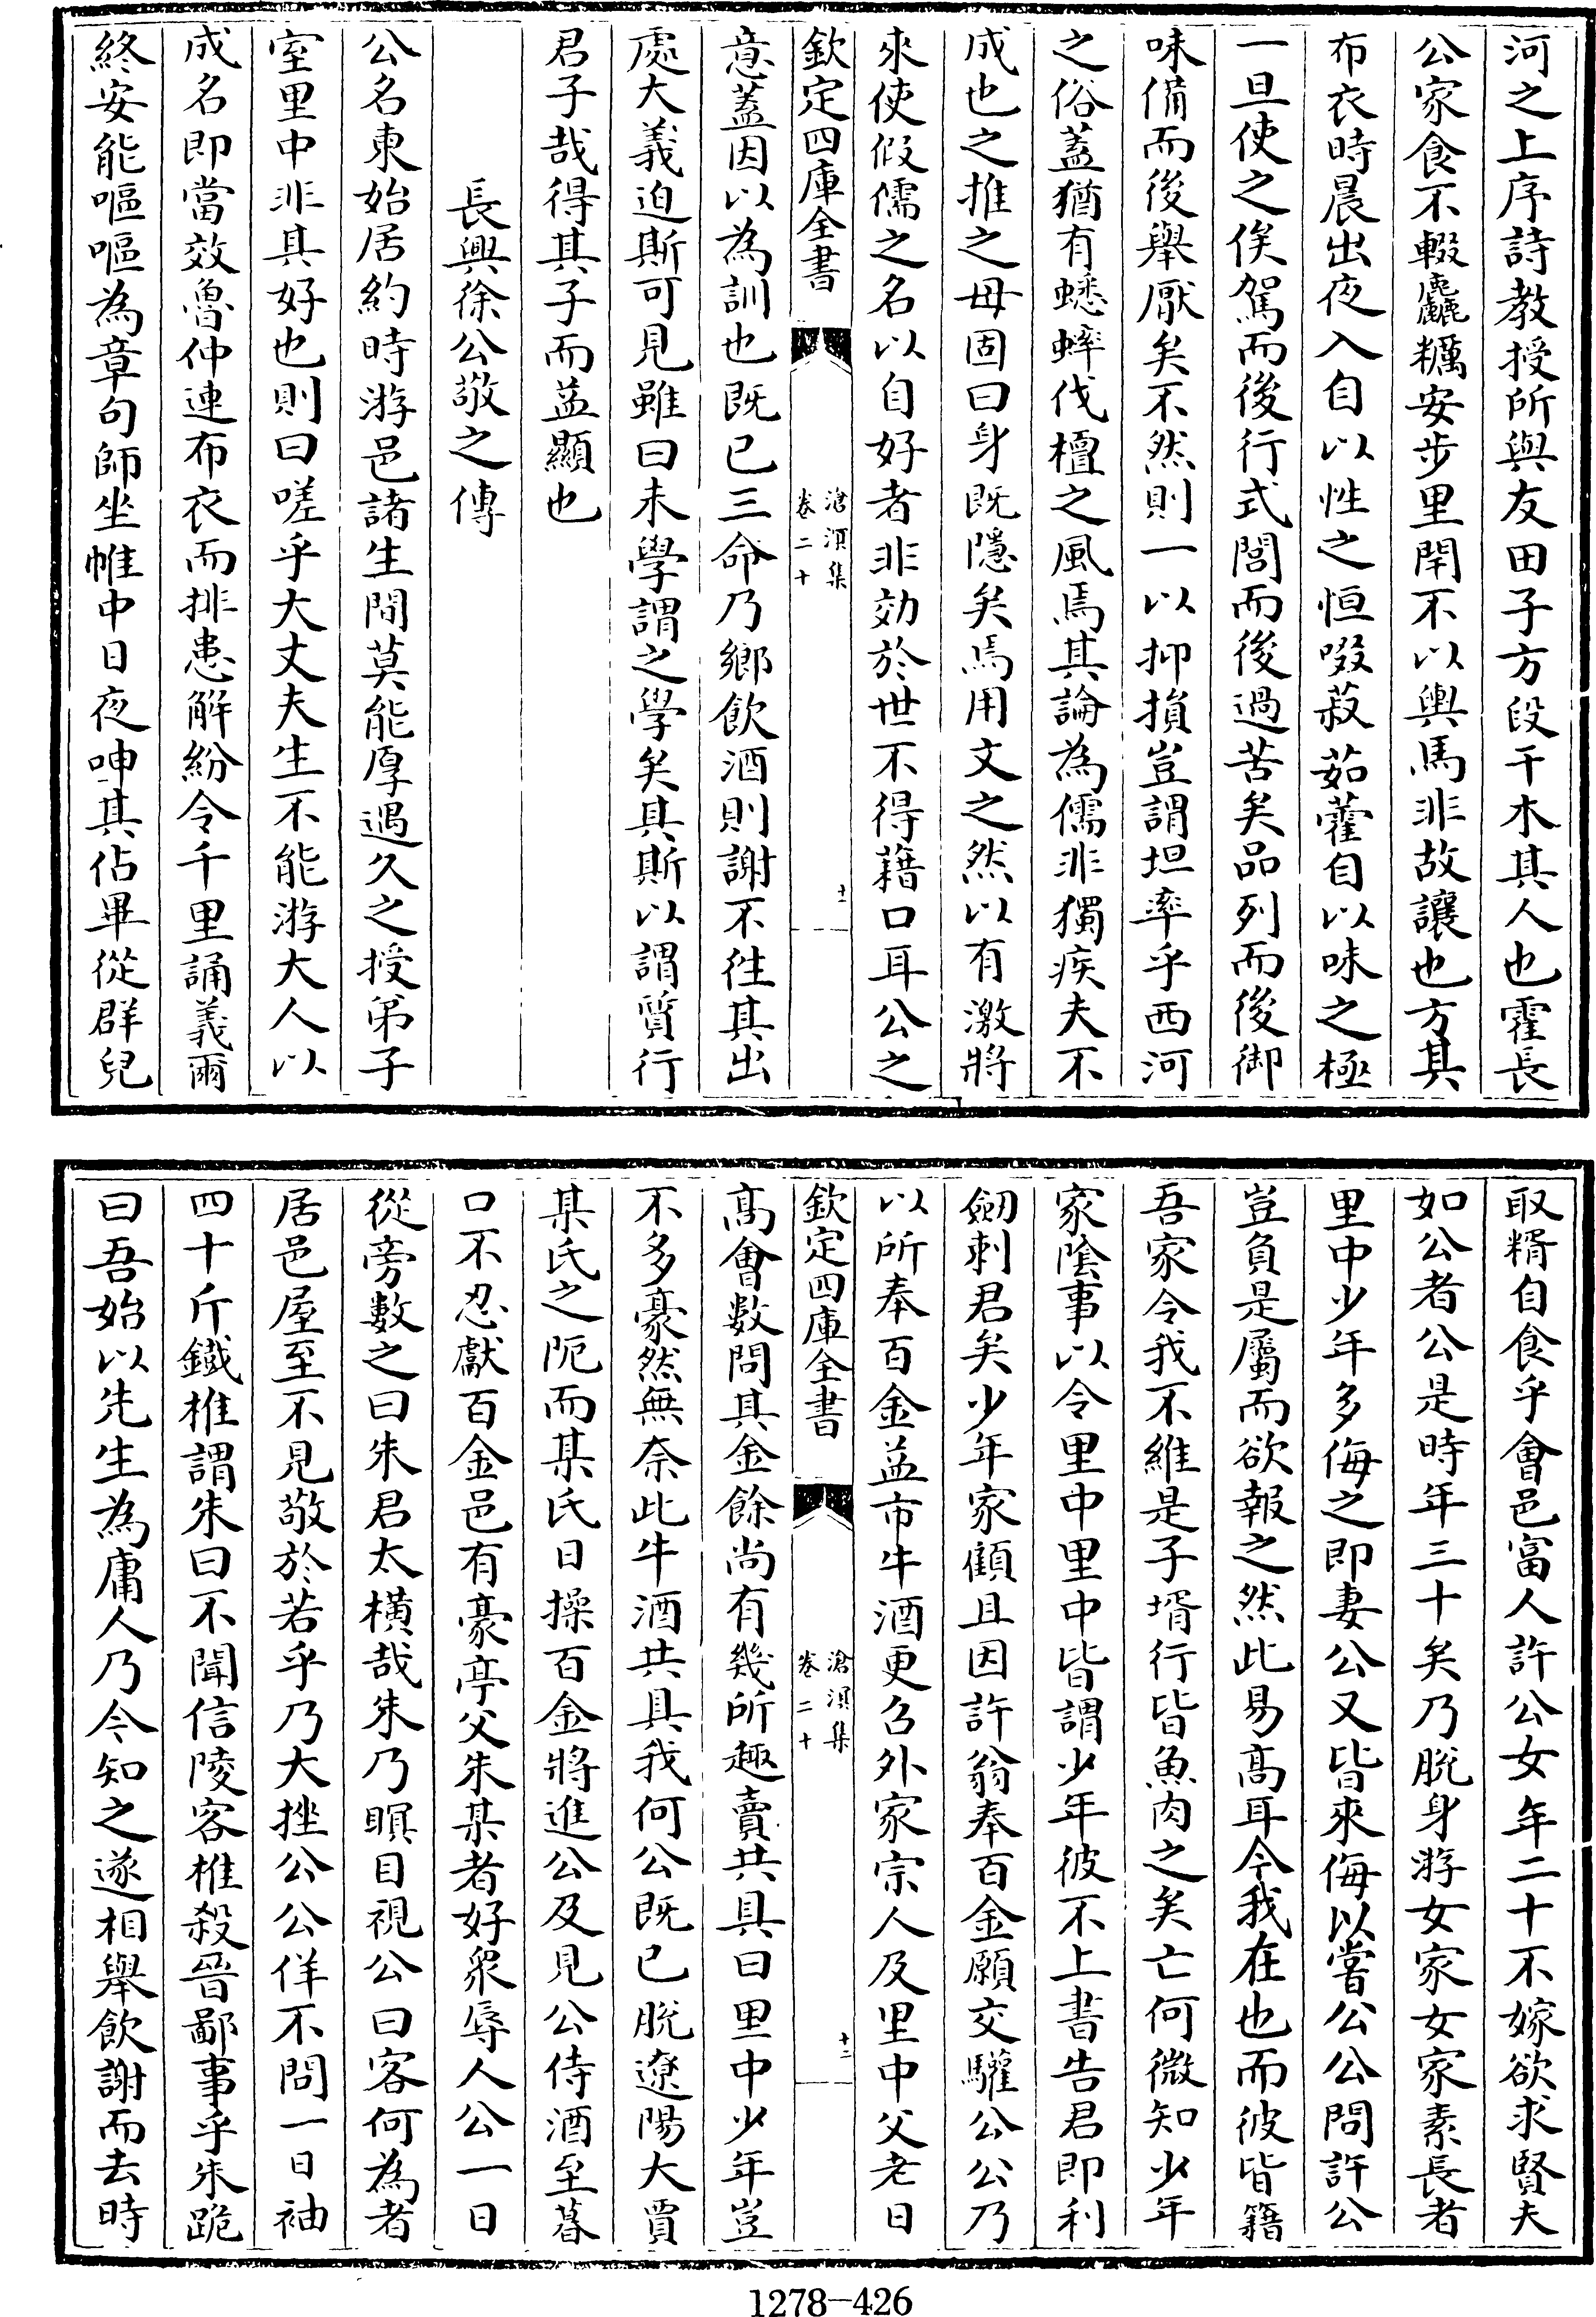 河之上序詩教授所與友田子方段干木其人也霍長
公家食不輟麤糲安步里閈不以輿馬非故讓也方其
布衣時晨出夜入自以性之恒啜菽茹藿自以味之極
一旦使之俟駕而後行式閭而後過苦矣品列而後御
味備而後舉厭矣不然則一以抑損豈謂坦率乎西河
之俗蓋猶有蟋蟀伐檀之風焉其論為儒非獨疾夫不
成也之推之母固曰身既隱矣焉用文之然以有激將
來使假儒之名以自好者非効於世不得藉口耳公之
欽定四庫全書
滄溟集
卷二十
十一
意蓋因以為訓也既已三命乃鄉飲酒則謝不徃其出
處大義迫斯可見雖曰未學謂之學矣其斯以謂質行
君子哉得其子而益顯也
長興徐公敬之傳
公名東始居約時游邑諸生間莫能厚遇久之授弟子
室里中非其好也則曰嗟乎大丈夫生不能游大人以
成名即當效魯仲連布衣而排患解紛令千里誦義爾
終安能嘔嘔為章句師坐帷中日夜呻其佔畢從群兒
取糈自食乎會邑富人許公女年二十不嫁欲求賢夫
如公者公是時年三十矣乃脫身游女家女家素長者
里中少年多侮之即妻公又皆來侮以嘗公公問許公
豈負是屬而欲報之然此易髙耳今我在也而彼皆籍
吾家令我不維是子壻行皆魚肉之矣亡何微知少年
家陰事以令里中里中皆謂少年彼不上書告君即利
劒刺君矣少年家傾且因許翁奉百金願交驩公公乃
以所奉百金益市牛酒更召外家宗人及里中父老日
欽定四庫全書
滄溟集
卷二十
十二
髙會數問其金餘尚有幾所趣賣共具曰里中少年豈
不多豪然無奈此牛酒共具我何公既已脫遼陽大賈
某氏之阨而某氏日操百金將進公及見公侍酒至暮
口不忍獻百金邑有豪亭父朱某者好衆辱人公一日
從旁數之曰朱君太橫哉朱乃瞋目視公曰客何為者
居邑屋至不見敬於若乎乃大挫公公佯不問一日袖
四十斤鐵椎謂朱曰不聞信陵客椎殺晉鄙事乎朱跪
曰吾始以先生為庸人乃今知之遂相舉飲謝而去時
1278-426